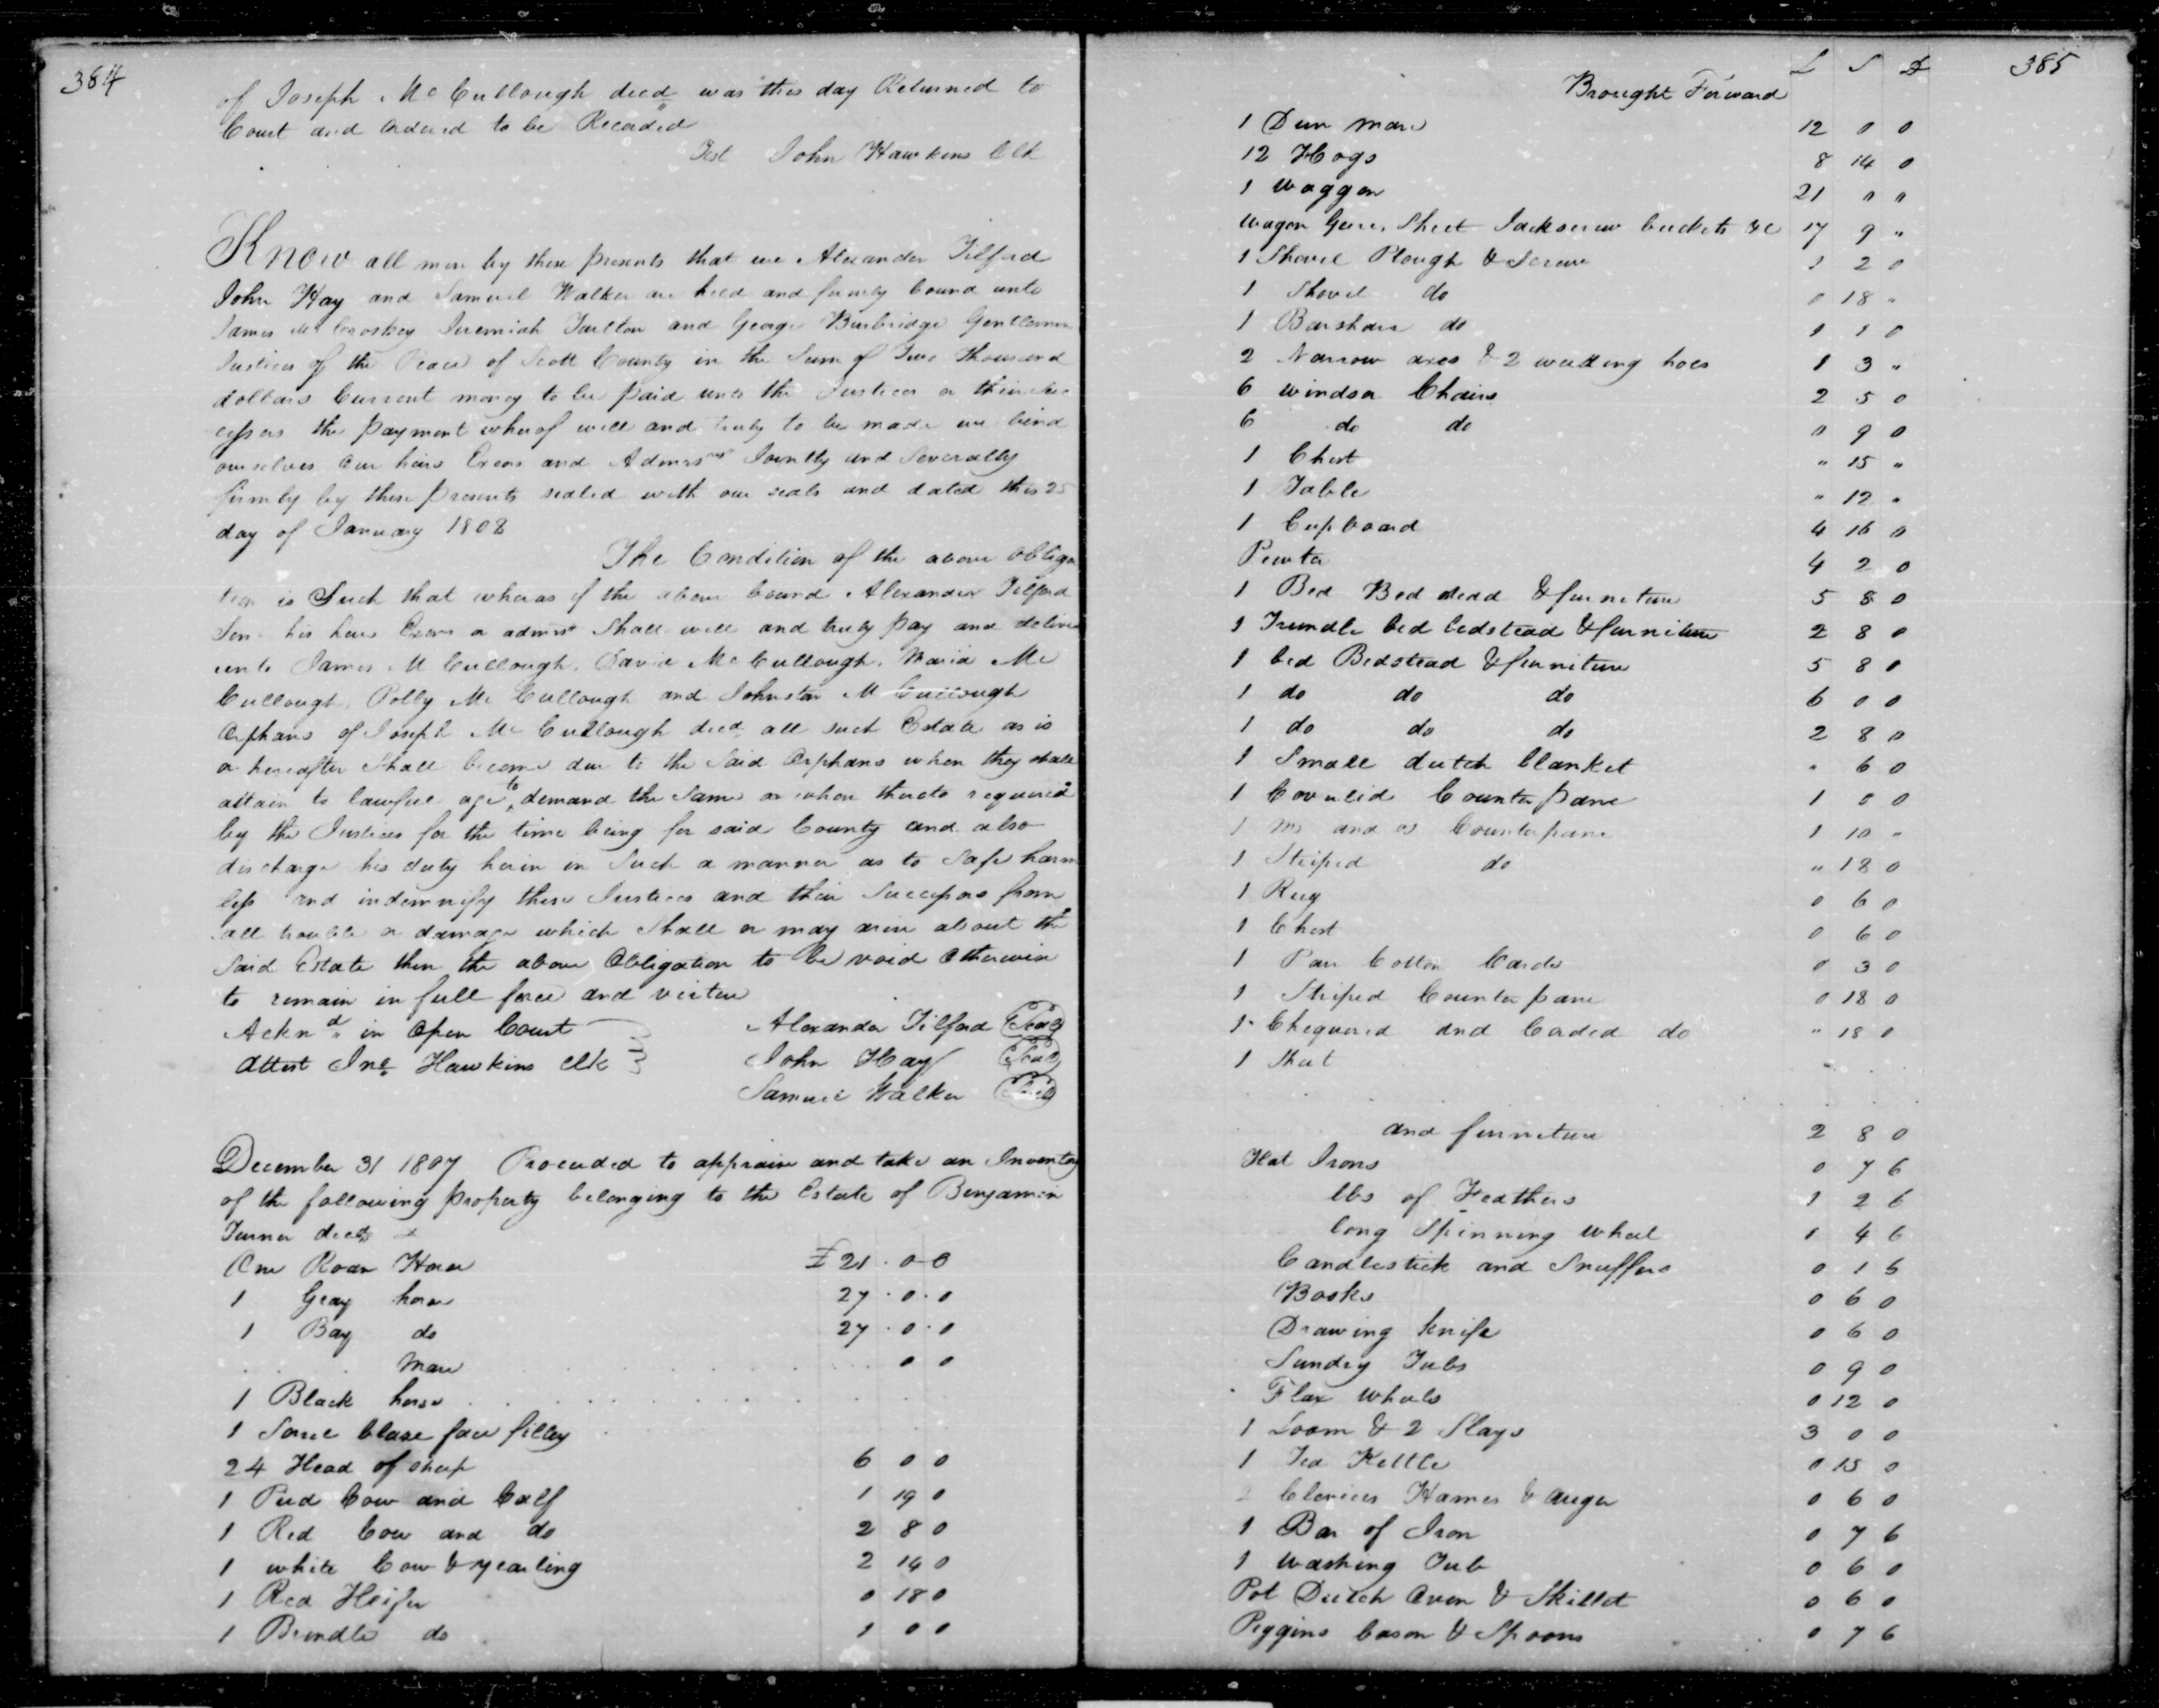 384
of Joseph Mc Cullough decd was this day Returned to
Court and Ordered to be Recorded
Test John Hawkins Clk
Know all men by these presents that we Alexander Tilford
John Hay and Samuel Walker are held and firmly bound unto
James Mc Croskey Jeremiah Tarlton and George Burbridge Gentlemen
Justices of the Peace of Scott County in the Sum of Two Thousand
dollars Current money to be paid unto the Justices or their Suc
cessors the payment whereof well and truly to be made we bind
ourselves our heirs Exors and Admrs Jointly and Severally
firmly by these presents sealed with our seals and dated this 25
day of January 1808
The Condition of the above obliga
tion is Such that whereas if the above bound Alexander Tilford
his heirs Exors or admrs Shall well and truly pay and deliver
unto James M Cullough, David Mc Cullough, Maria Mc
Cullough, Polly Mc Cullough and Johnston M Cullough
Orphans of Joseph Mc Cullough decd all such Estate as is
or hereafter Shall become due to the Said Orphans when they shall
attain to lawful age to demand the Same or when thereto required
by the Justices for the time being for said County and also
discharge his duty herin in Such a manner as to Safe harm
less and indemnify these Justices and their Successors from
all trouble or damage which Shall or may arise about the
Said Estate then the above Obligation to be void Otherwise
to remain in full force and virtue
Acknd in Open Court
Attest Jno Hawkins Clk
Alexander Tilford Seal
John Hay Seal
Samuel Walker Seal
December 31 1807 Proceeded to appraise and take an Inventory
of the following property belonging to the Estate of Benjamin
Turner decd
One Roan Horse £ 21 . 0 - 0
1 Gray horse 27 . 0 . 0
1 Bay do 27 . 0 . 0
Mare 0 0
1 Black horse
1 Sorrel blaze face filley
24 Head of sheep 6 0 0
1 Pied Cow and Calf 1 19 0
1 Red Cow and do 2 8 0
1 white Cow & yearling 2 14 0
1 Red Heifer 0 18 0
1 Brindle do 1 0 0
385
L S D
Brought Forward
1 Dun mare 12 0 0
12 Hogs 8 14 0
1 Waggon 21 " "
Wagon Geers, Sheet Jackscrew buckets &c 17 9 "
1 Shovel Plough & Screw 1 2 0
1 Shovel do 0 18 "
1 Barshare do 1 1 0
2 Narrow axes & 2 weeding hoes 1 3 "
6 windsor Chairs 2 5 0
6 do do 0 9 0
1 Chest " 15 "
1 Table " 12 "
1 Cupboard 4 16 0
Pewter 4 2 0
1 Bed Bed stedd & furniture 5 8 0
1 Trundle bed bedstead & furniture 2 8 0
1 bed Bedstead & furniture 5 8 0
1 do do do 6 0 0
1 do do do 2 8 0
1 Small dutch blanket " 6 0
1 Coverlid Counterpane 1 0 0
1 and Counterpane 1 10 "
1 Striped do " 18 0
1 Rug 0 6 0
1 Chest 0 6 0
1 Pair Cotton Cards 0 3 0
1 Striped Counterpane 0 18 0
1 Chequered and Corded do " 18 0
1
and furniture 2 8 0
Flat Irons 0 7 6
lbs of Feathers 1 2 6
long Spinning wheel 1 4 6
Candlestick and Snuffers 0 1 6
Books 0 6 0
Drawing knife 0 6 0
Sundry Tubs 0 9 0
Flax wheels 0 12 0
1 Loom & 2 Slays 3 0 0
1 Tea Kettle 0 15 0
2 Clevices Hames & auger 0 6 0
1 Bar of Iron 0 7 6
1 washing Tub 0 6 0
Pot Dutch Oven & Skillet 0 6 0
Piggins bason & Spoons 0 7 6